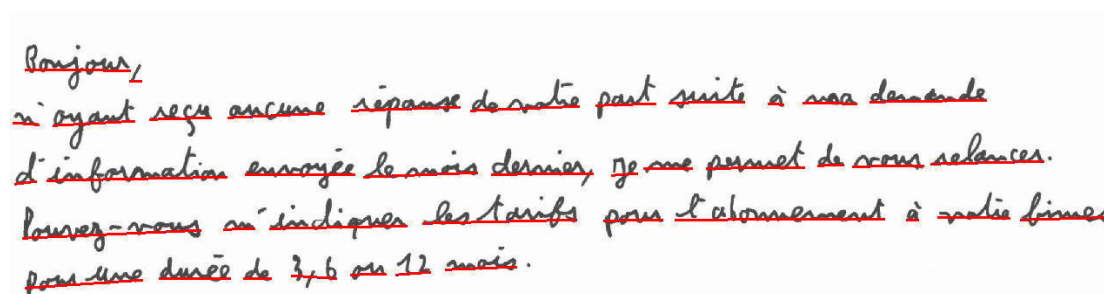 Bonjour,
n'ayant reçu aucune réponse de votre part suite à ma demande
d'information envoyée le mois dernier, je me permet de vous relancer.
Pouvez-vous m'indiquer les tarifs pour l'abonnement à votre firmes
pour une durée de 3, 6 ou 12 mois.